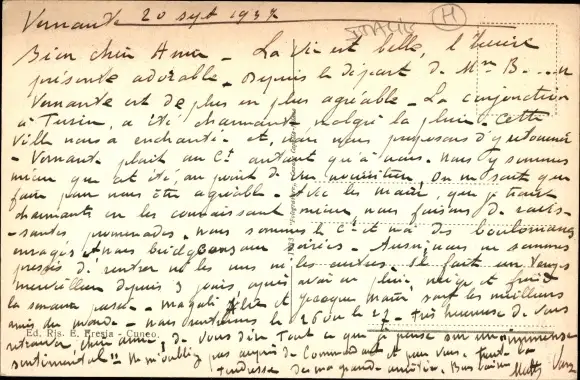 Vernante 20 sept 1937
ITALIE
H
Bien chère Amie - La vie est belle, l'heure
présente adorable. Depuis le départ de Mme B....
Vernante est de plus en plus agréable - La conjonction
à Turin, a été charmante malgré la pluie. Cette
ville nous a enchantés et, nous nous proposons d'y retourner
- Vernante plait au Ct autant qu'à nous. Nous y sommes
mieux que cet été, au point de vue nourriture. On ne sait que
faire pour nous être agréable - Avec les que je trouve
charmants en les connaissant mieux, nous faisons de
santes promenades. Nous sommes le Ct et moi des boulomanes
enragés et nous bridgeons aux soirées - Aussi nous ne sommes
pressés de rentrer ni les uns ni les autres. Il fait un temps
merveilleux depuis 3 jours, après avoir eu pluie, neige et froid
la semaine passée - et Jacques sont les meilleurs
amis du monde - nous rentrerons le 26 ou le 27 - Très heureuse de vous
Ed. Ris. E. Fresia - Cuneo.
retrouver chère amie, de vous dire tout ce que je pense sur un immense
sentimental". Ne m'oubliez pas auprès du Commandant et pour vous, toute la
tendresse de ma grande amitié. Bons baisers